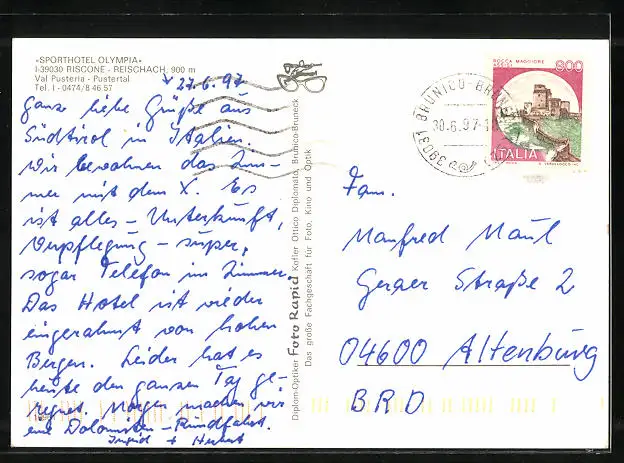 «SPORTHOTEL OLYMPIA»
I-39030 RISCONE - REISCHACH, 900 m
Val Pusteria - Pustertal
Tel. I - 0474/8 46 57
27.6.97
Ganz liebe Grüße aus
Südtirol in Italien.
Wir bewohnen das Zim-
mer mit dem X. Es
ist alles - Unterkunft,
Verpflegung - super,
sogar Telefon im Zimmer.
Das Hotel ist wieder
eingerahmt von hohen
Bergen. Leider hat es
heute den ganzen Tag ge-
regnet. Morgen machen wir
eine Dolomiten-Rundfahrt.
Ingrid + Herbert
Diplom-Optiker Foto Rapid Kofler Ottico Diplomato, Brunico-Bruneck
Das große Fachgeschäft für Foto, Kino und Optik
ROCCA MAGGIORE
ASSISI
800
ITALIA
39031 BRUNICO-BRUNECK
30.6.97
Fam.
Manfred Maul
Geraer Straße 2
04600 Altenburg
BRD